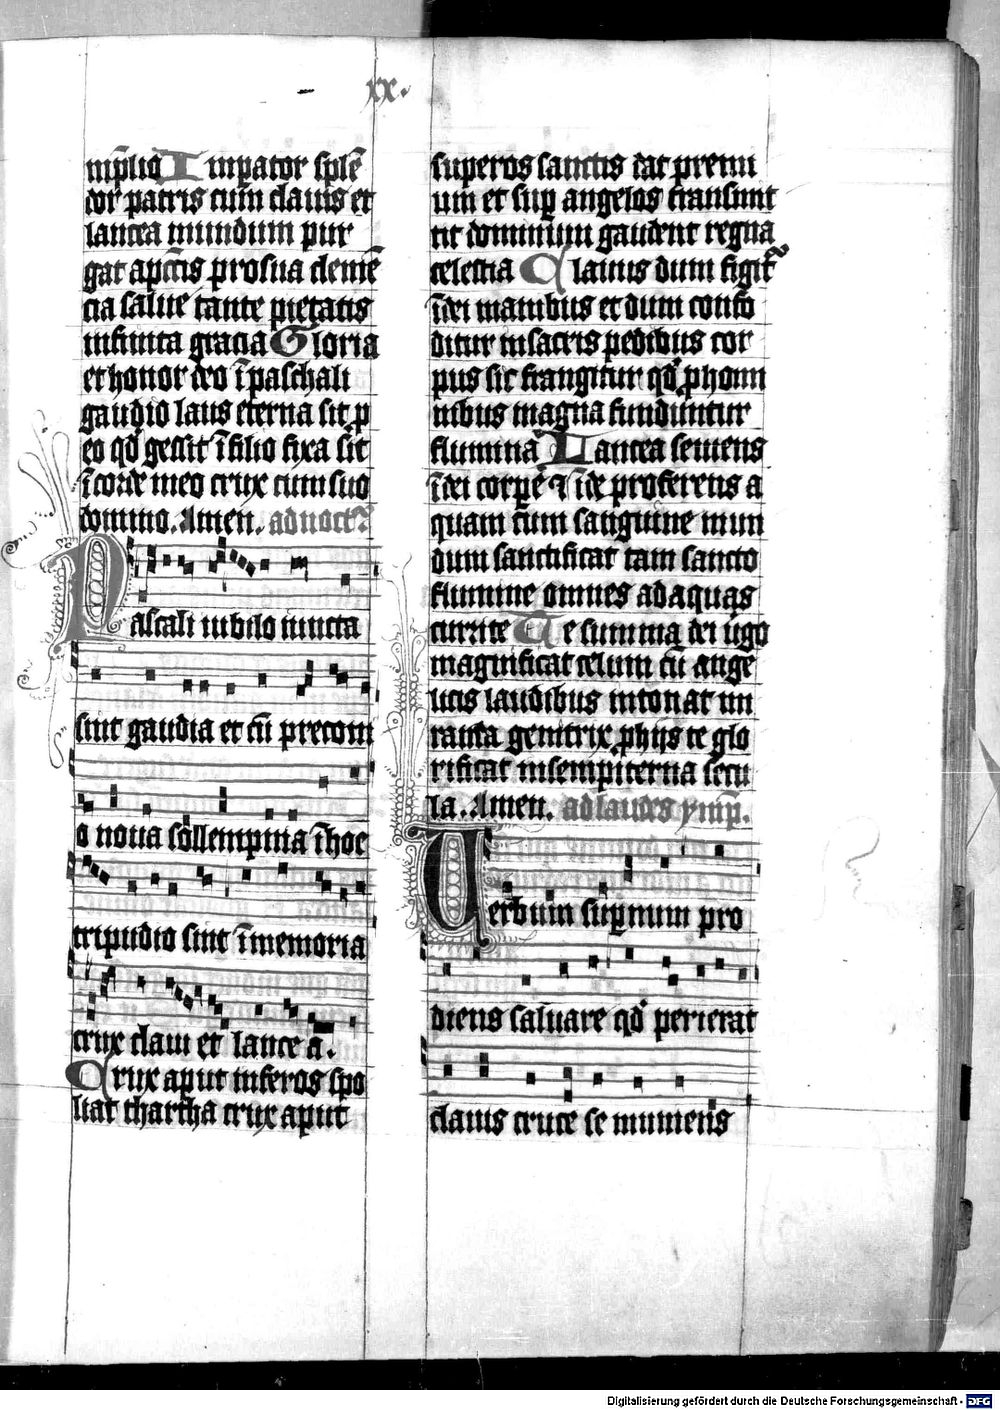 xx.
mp̄lio Impator splē
dor patris cum clauis et
lancea mundum pur
gat apctīs pro sua clemē
cia salue tante pietatis
infinita gracia Gloria
et honor deo ī paschali
gaudio laus eterna sit p
eo qd̓ gessit ī filio fixa sīt
ī corde meo crux cum suo
domino. Amen. ad noct̄
Pascali iubilo iuncta
sint gaudia et cū preconi
o noua sollempnia ī hoc
tripudio sint ī memoria
crux claui et lance a.
Crux aput inferos spo
liat thartha crux aput
superos sanctis dat premi
um et sup angelos transunt
tit dominium gaudent regna
celestia Clauus dum figit̄
īdei manibus et dum confo
ditur in sacris pedibus cor
pus sic frangitur qd̓ phoni
nibus magna funduntur
flumina Lancea seuiens
ī dei corpe & īde proferens a
quam cum sanguine mun
dum sanctificat tam sancto
flumine omnes ad aquas
currite Te summa dei uigo
magnificat celum cū ange
licis laudibus intonat mi
randa genitrix phijs te glo
rificat in sempiterna secu
la. Amen. ad laudes ymp̄.
Uerbum supnum pro
diens saluare qd̓ perierat
clauis cruce se muniens
Digitalisierung gefördert durch die Deutsche Forschungsgemeinschaft - DFG